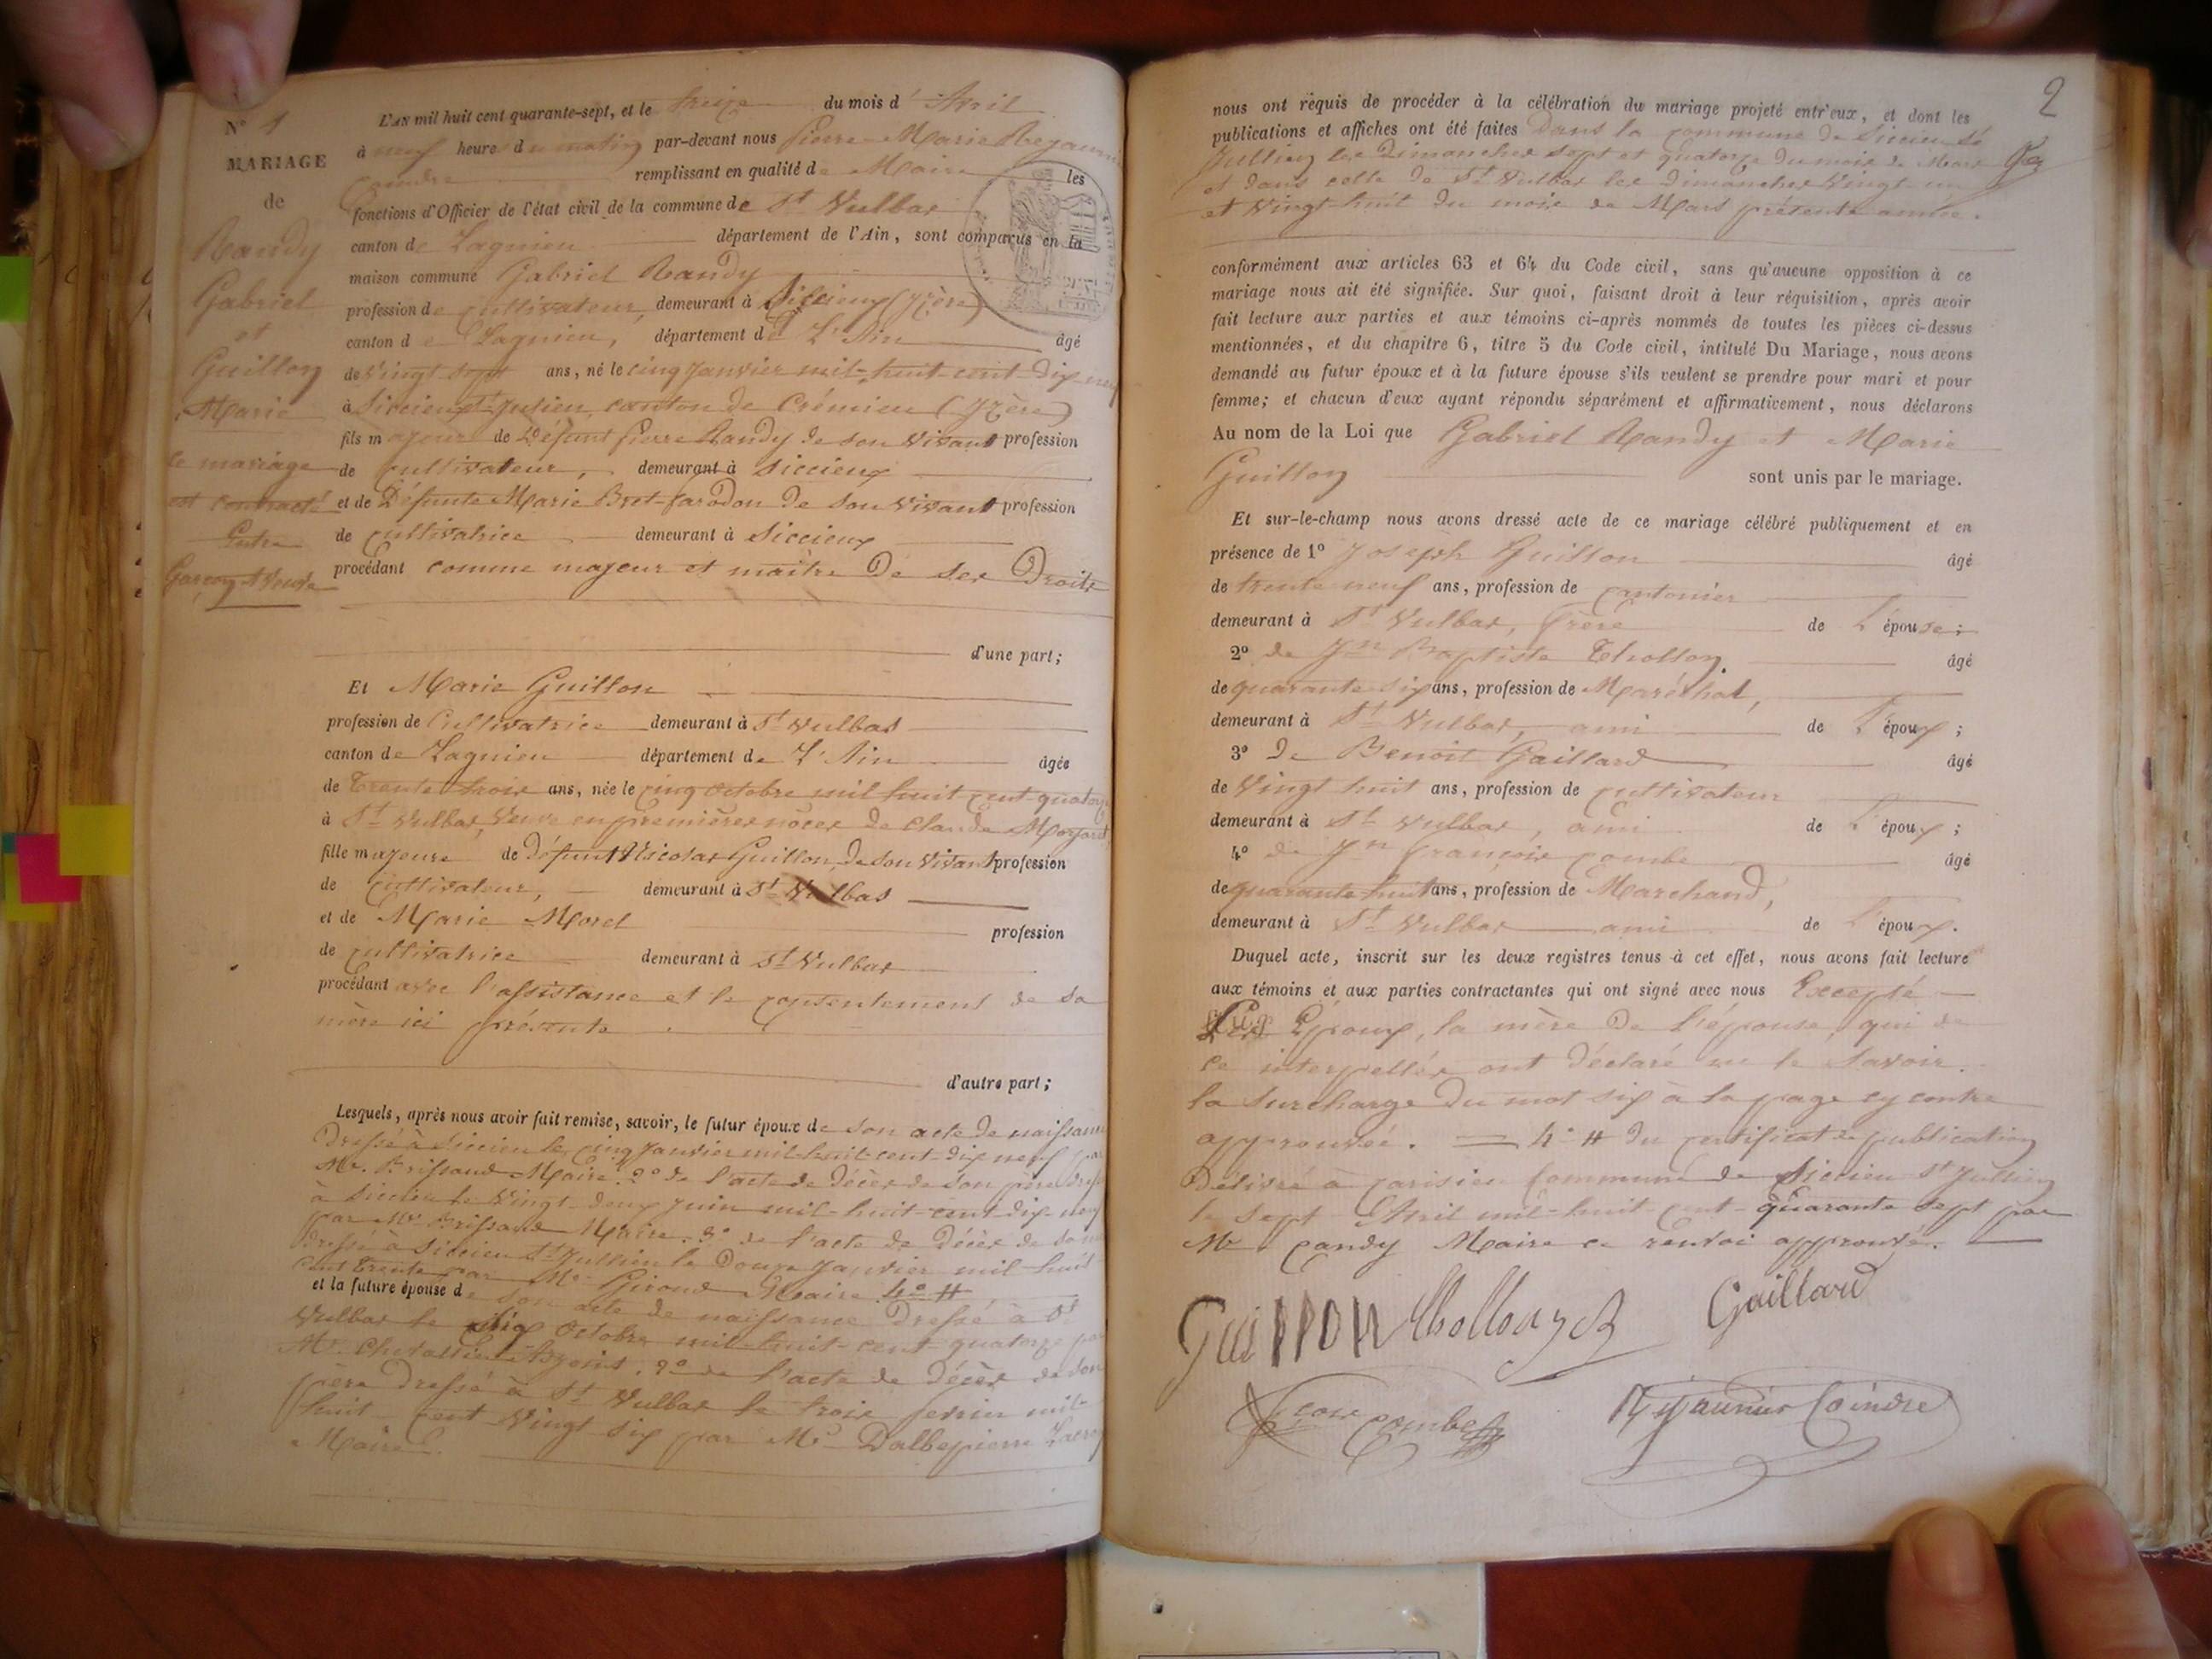 N° 1
MARIAGE
de
Randy
Gabriel
et
Guillon
Marie
le mariage
est contracté
Entre
Garçon & Veuve
L'AN mil huit cent quarante-sept, et le treize du mois d'Avril
à neuf heures du matin par-devant nous Pierre Marie Rejaunier
Coindre remplissant en qualité de Maire les
fonctions d'Officier de l'état civil de la commune de St Vulbas
canton de Lagnieu département de l'Ain, sont comparus en la
maison commune Gabriel Randy
profession de cultivateur, demeurant à Siccieux (Yzère)
canton de Lagnieu, département de L'Ain âgé
de Vingt-sept ans, né le cinq Janvier mil-huit-cent-dix neuf
à Siccieu St Julien, canton de Crémieu (Yzère)
fils majeur de Défunt Pierre Randy de son Vivant profession
de cultivateur, demeurant à Siccieux
et de Défunte Marie Bret-parodon de son Vivant profession
de cultivatrice demeurant à Siccieux
procédant comme majeur et maître De ses Droits
d'une part;
Et Marie Guillon
profession de Cultivatrice demeurant à St Vulbas
canton de Lagnieu département de L'Ain âgée
de Trente-trois ans, née le cinq Octobre mil huit cent-quatorze
à St Vulbas, Veuve en premières nôces de Claude
fille majeure de Défunt Nicolas Guillon, de son Vivant profession
de Cultivateur, demeurant à St Vulbas
et de Marie Morel profession
de cultivatrice demeurant à St Vulbas
procédant avec l'assistance et le consentement de sa
mère ici présente.
d'autre part;
Lesquels, après nous avoir fait remise, savoir, le futur époux de son acte de naissance
Dressé à Siccieu le cinq Janvier mil-huit-cent-dix neuf par
Mr. Brissaud Maire. 2° de l'acte de décès de son père dressé
à Siccieu le Vingt-deux Juin mil-huit-cent-dix-neuf
par Mr Brissaud Maire. 3° de l'acte de Décès de sa
dressé à Siccieu St Jullien le Douze Janvier mil-huit
cent Trente par Mr. Giroud Maire 4° #
et la future épouse de son acte de naissance Dressé à St
Vulbas le Octobre mil-huit-cent-quatorze par
Mr. Chevallier 2° de l'acte de Décès de son
père Dressé à St Vulbas le trois février mil-
huit cent Vingt six par Mr Dalbepierre
Maire.
2
nous ont requis de procéder à la célébration du mariage projeté entr'eux, et dont les
publications et affiches ont été faites Dans la commune de Siccieu St
Jullien les Dimanches sept et quatorze Du mois de Mars
et dans celle de St Vulbas les Dimanches Vingt-un
et Vingt-huit Du mois de Mars présente année.
conformément aux articles 63 et 64 du Code civil, sans qu'aucune opposition à ce
mariage nous ait été signifiée. Sur quoi, faisant droit à leur réquisition, après avoir
fait lecture aux parties et aux témoins ci-après nommés de toutes les pièces ci-dessus
mentionnées, et du chapitre 6, titre 5 du Code civil, intitulé Du Mariage, nous avons
demandé au futur époux et à la future épouse s'ils veulent se prendre pour mari et pour
femme; et chacun d'eux ayant répondu séparément et affirmativement, nous déclarons
Au nom de la Loi que Gabriel Randy et Marie
Guillon sont unis par le mariage.
Et sur-le-champ nous avons dressé acte de ce mariage célébré publiquement et en
présence de 1° Joseph Guillon âgé
de trente neuf ans, profession de cantonier
demeurant à St Vulbas, frère de L'épouse;
2° de Jn Baptiste Thollon. âgé
de quarante-six ans, profession de Maréchal,
demeurant à St Vulbas, ami de L'époux;
3° De Benoit Gaillard âgé
de Vingt huit ans, profession de cultivateur
demeurant à St Vulbas, ami de L'époux;
4° de Jn françois combe âgé
de quarante-huit ans, profession de Marchand,
demeurant à St Vulbas ami de L'époux.
Duquel acte, inscrit sur les deux registres tenus à cet effet, nous avons fait lecture
aux témoins et aux parties contractantes qui ont signé avec nous Excepté
Les Epoux, la mère De l'épouse, qui de
ce interpellés ont Déclaré ne le Savoir.
la Surcharge Du mot six à la page cy contre
approuvée. 4° # du certificat de publication
Délivré à parisieu Commune de Siccieu St Jullien
le sept Avril mil-huit-cent-quarante sept par
Mr Candy Maire ce renvoi approuvé.
GuiLLON Thollon Gaillard
combe Rejaunier Coindre